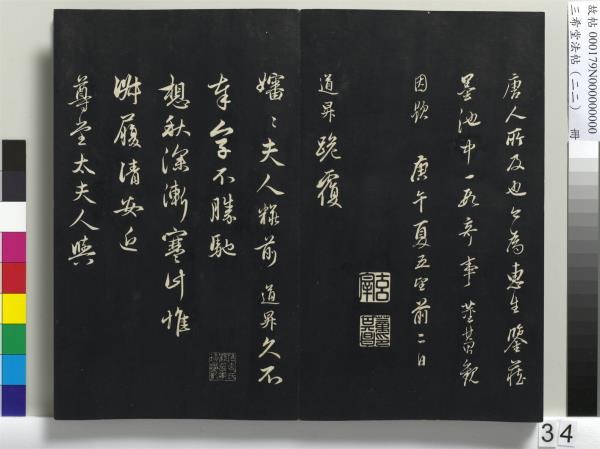 唐人所及也今為惠生鑒藏
墨池中一段奇事 董其昌觀
因題 庚午夏五望前二日
道昇跪覆
嬸〻夫人粧前 道昇久不
奉字不勝馳
想秋深漸寒計惟
淑履清安近
尊堂太夫人與
故帖 000179N000000000
三希堂法帖(二二) 冊
34